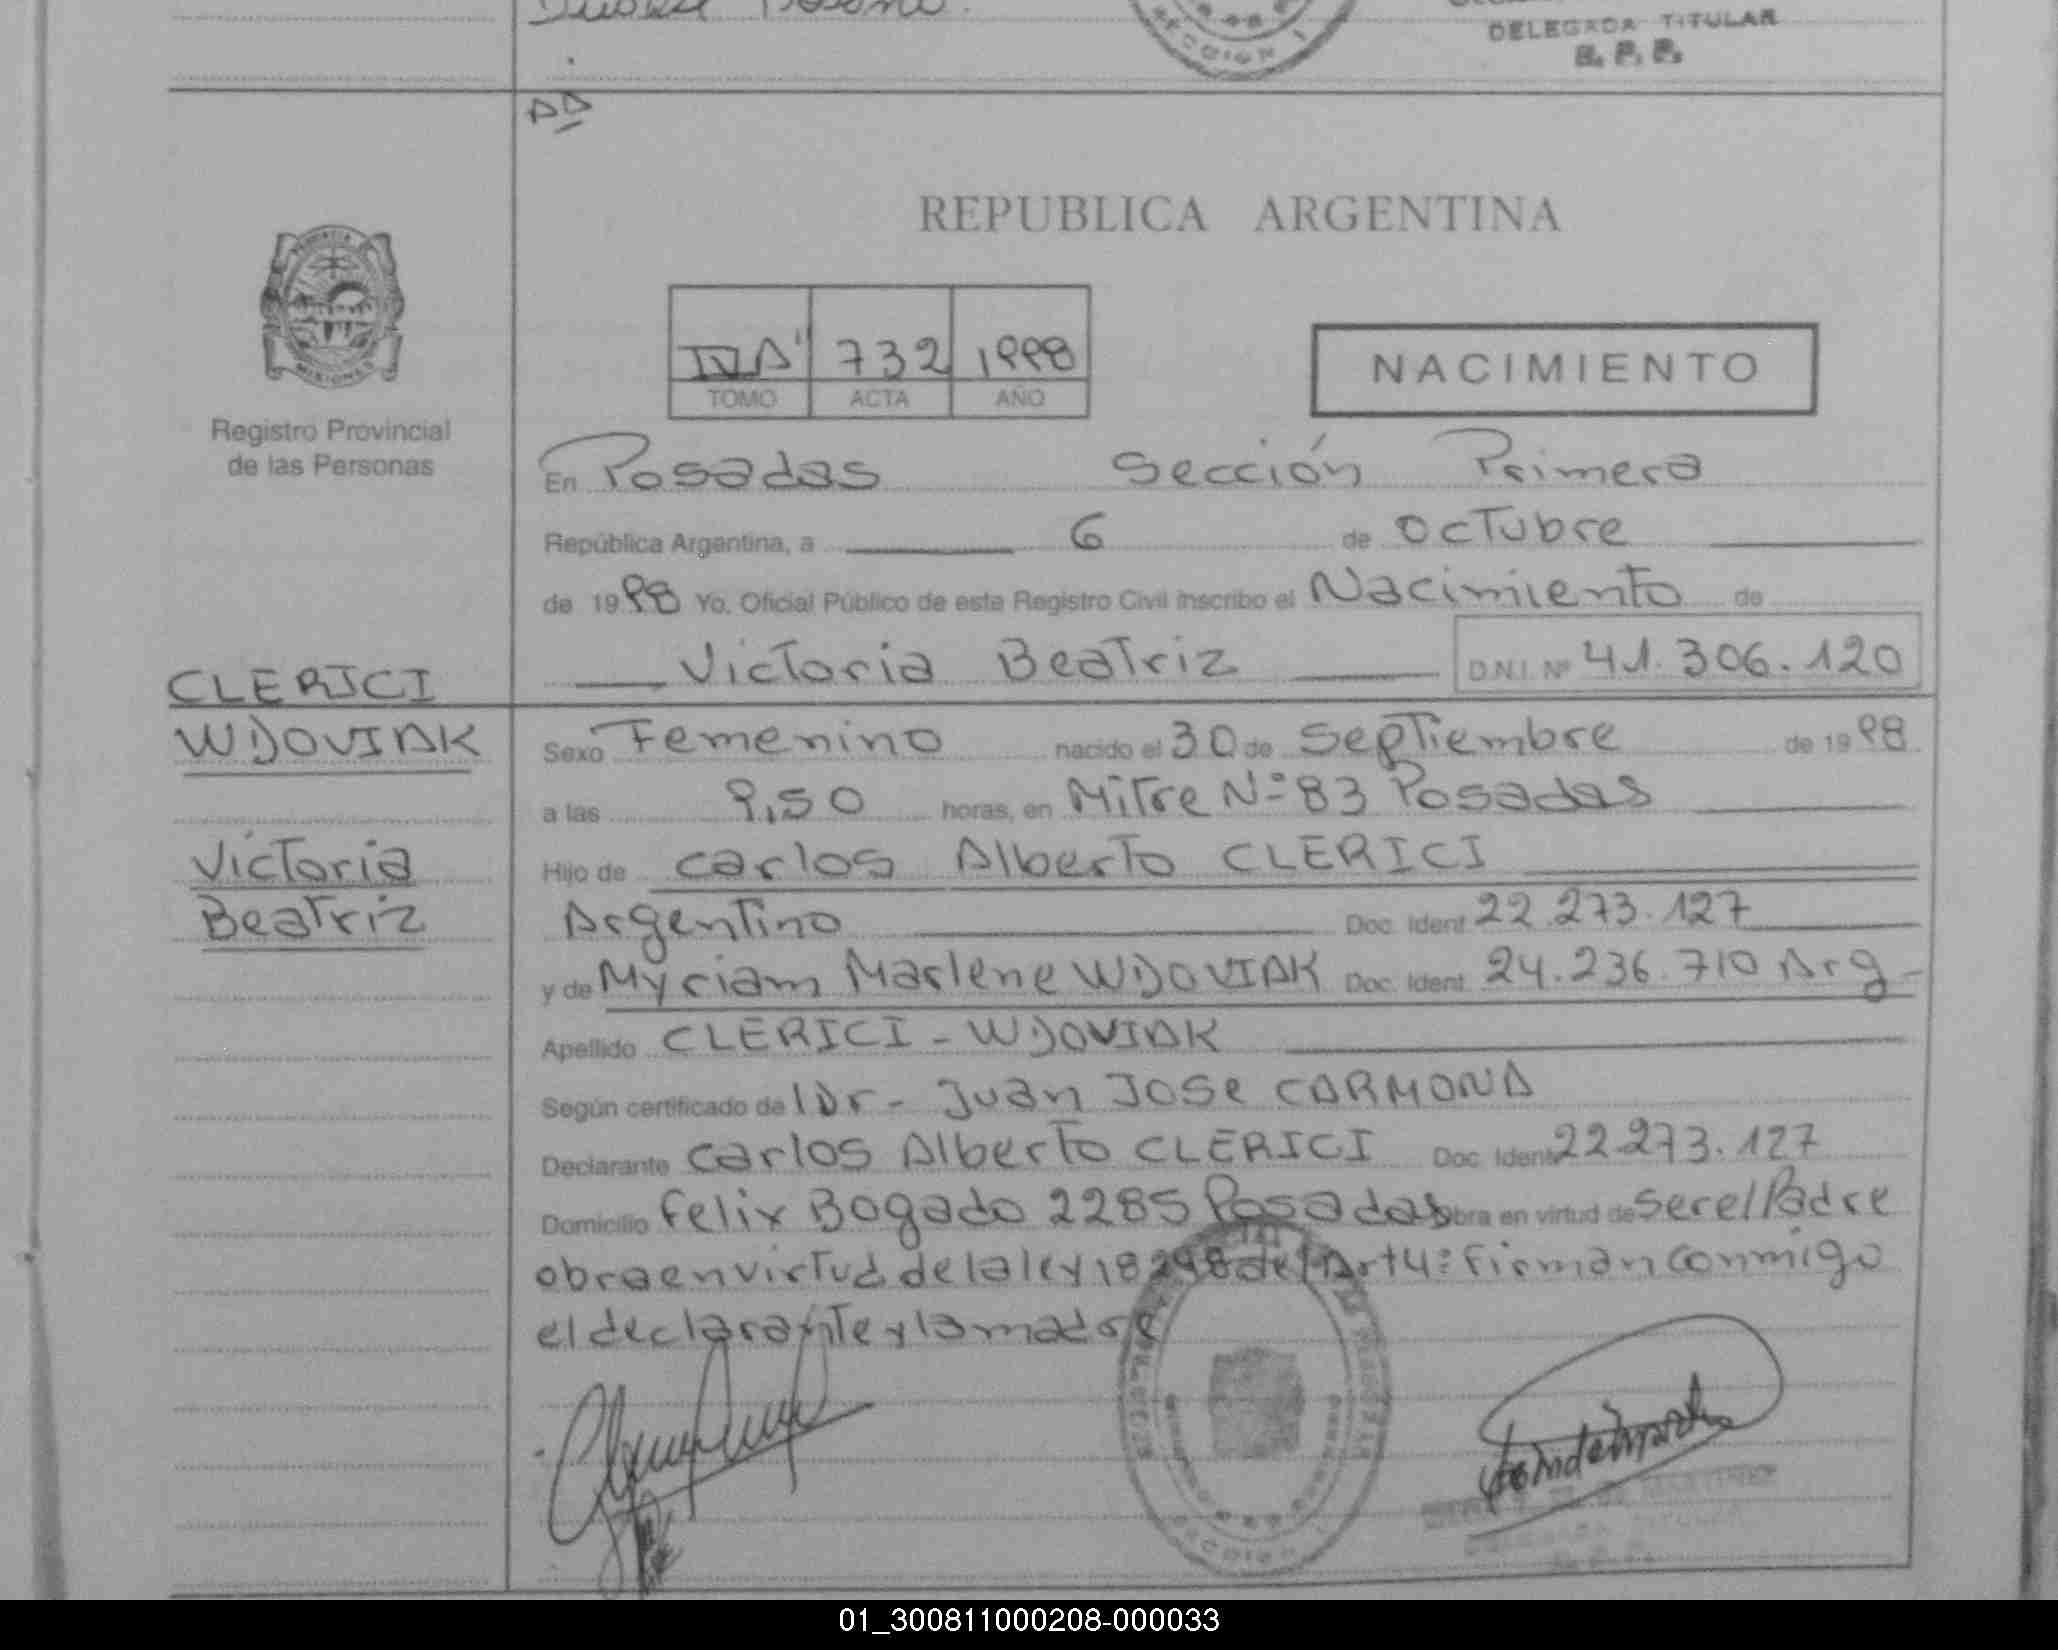 DELEGADA TITULAR
R. P. P.
REPUBLICA ARGENTINA
732 1998
TOMO ACTA AÑO
NACIMIENTO
MISIONES
Registro Provincial
de las Personas
En Posadas Sección Primera
República Argentina, a 6 de Octubre
de 1998 Yo. Oficial Público de este Registro Civil inscribo el Nacimiento de
Victoria Beatriz D.N.I. Nº 41.306.120
CLERICI
WDOVIAK
Victoria
Beatriz
Sexo Femenino nacido el 30 de Septiembre de 1998
a las 9,50 horas, en Mitre Nº 83 Posadas
Hijo de Carlos Alberto CLERICI
Argentino Doc. Ident. 22.273.127
y de Myriam Marlene WDOVIAK Doc. Ident. 24.236.710 Arg-
Apellido CLERICI - WDOVIAK
Según certificado de Dr- Juan Jose CARMONA
Declarante Carlos Alberto CLERICI Doc. Ident. 22.273.127
Domicilio Felix Bogado 2285 Posadas obra en virtud de ser el Padre
obra en virtud de la ley 18248 del Art 4º Firman conmigo
el declarante y la madre
SECCION
01_300811000208-000033